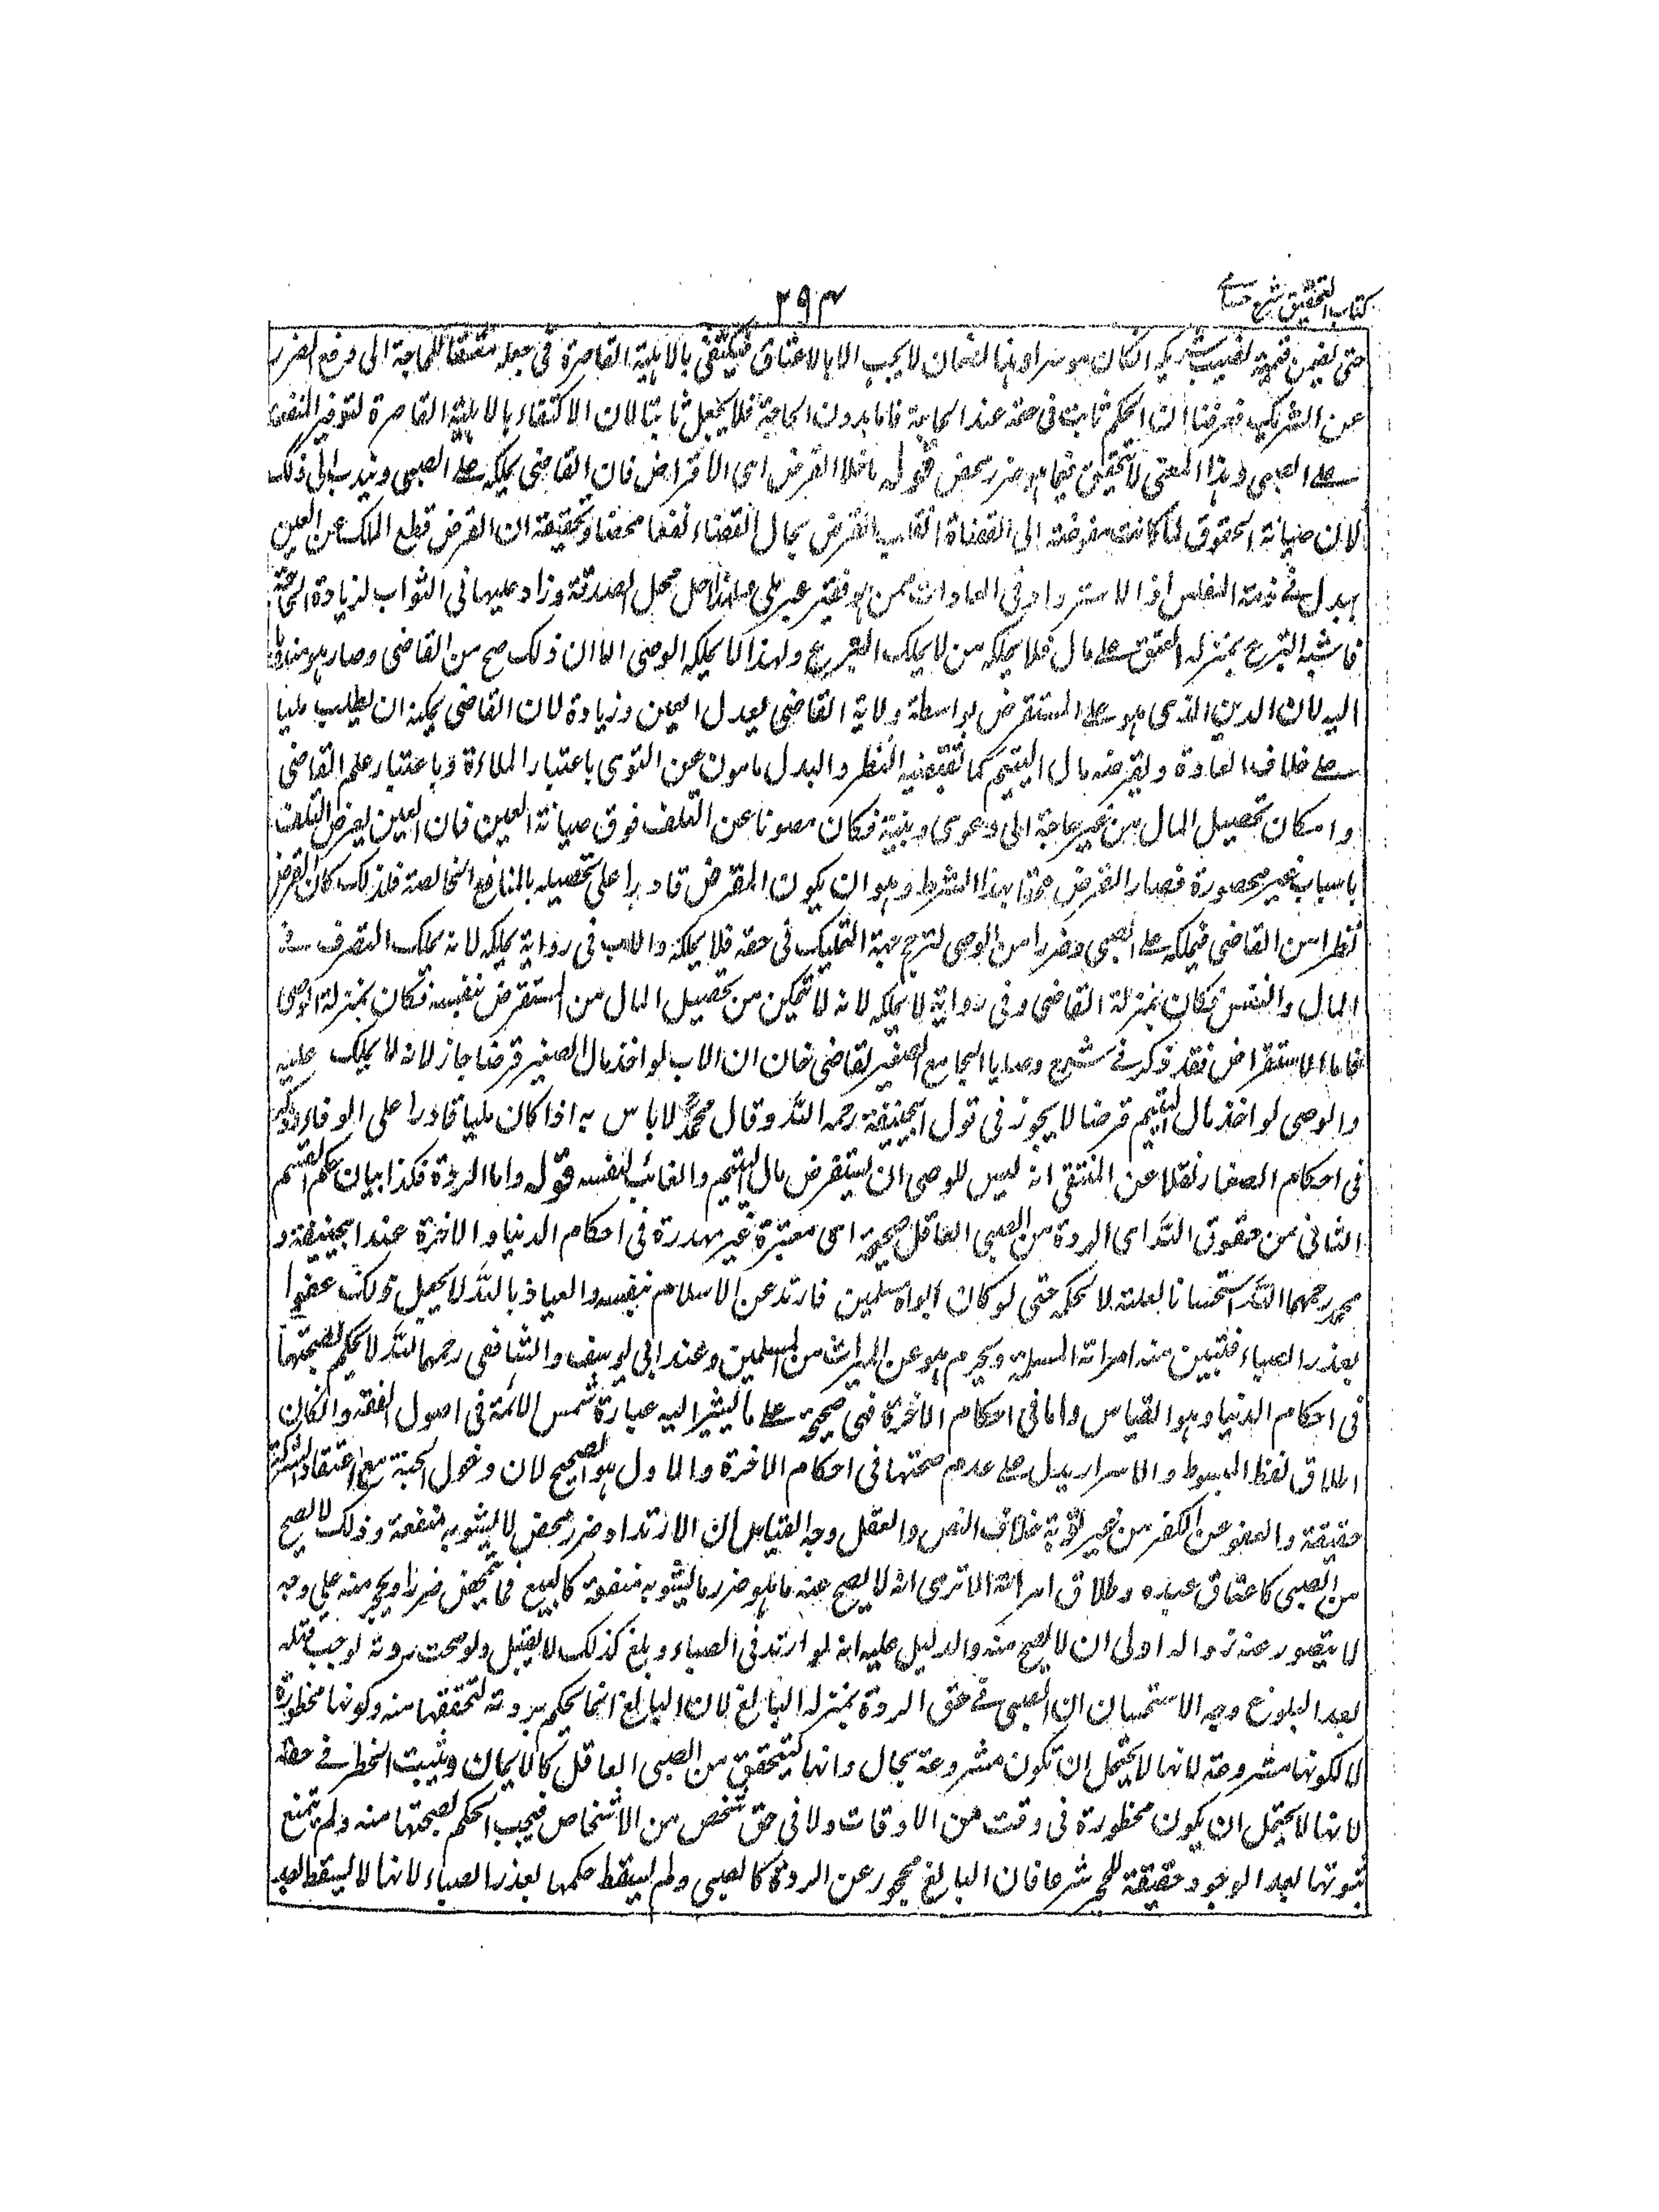 كتاب التحقيق شرح حسامي
٢٩٤
حتى يضمن قيمة نصيب شريكه ان كان موسرا وهذا الضمان لا يجب الا بالاعتاق فيكتفى بالاهلية القاصرة في جعله معتقا للحاجة الى دفع الضرر
عن الشريك فعرفنا ان الحكم ثابت في حقه عند الحاجة فاما بدون الحاجة فلا يجعل ثابتا لان الاكتفاء بالاهلية القاصرة لتوفير المنفعة
على الصبى وهذا المعنى لا يتحقق فيما هو ضرر محض قوله ما خلا القرض اى الاقراض فان القاضى يملكه على الصبى ويندب الى ذلك
لان صيانة الحقوق لما كانت مفوضة الى القضاة انقلب القرض بحال القضاء نفعا محضا وتحقيقه ان القرض قطع الملك عن العين
ببدل في ذمة المفلس اذ الاستقراض في العادات ممن هو فقير غير ملى ولهذا حل محل الصدقة وزاد عليها في الثواب لزيادة الحاجة
فاشبه التبرع بمنزلة العتق على مال فلا يملكه من لا يملك التبرع ولهذا لا يملكه الوصى الا ان ذلك صح من القاضى وصار هو مندوبا
اليه لان الدين الذى هو على المستقرض بواسطة ولاية القاضى يعدل العين وزيادة لان القاضى يمكنه ان يطلب مليا
على خلاف العادة ويقرضه مال اليتيم كما تقتضيه النظر والبدل مامون عن التوى باعتبار الملاءة وباعتبار علم القاضى
وامكان تحصيل المال من غير حاجة الى دعوى وبينة فكان مصونا عن التلف فوق صيانة العين فان العين يعرض التلف
باسباب غير محصورة فصار القرض محوتا بهذا الشرط وهو ان يكون المقرض قادرا على تحصيله بالمنافع الخالصة فلذلك كان القرض
نظرا من القاضى فيملكه على الصبى وضررا من الوصى لترجح جهة التمليك في حقه فلا يملكه والاب في رواية يملكه لانه يملك التصرف في
المال والنفس فكان بمنزلة القاضى وفى رواية لا يملكه لانه لا يتمكن من تحصيل المال من المستقرض بنفسه فكان بمنزلة الوصى
فاما الاستقراض فقد ذكر في شرح وصايا الجامع الصغير لقاضى خان ان الاب لو اخذ مال الصغير قرضا جاز لانه لا يملك عليه
والوصى لو اخذ مال اليتيم قرضا لا يجوز فى قول ابيحنيفة رحمه الله وقال محمد لا باس به اذا كان مليا قادرا على الوفاء وذكر
فى احكام الصغار نقلا عن المنتقى انه ليس للوصى ان يستقرض مال اليتيم والغائب لنفسه قوله واما الردة فكذا بيان حكم القسم
الثانى من حقوق الله اى الردة من الصبى العاقل صحيحة اى معتبرة غير مهدرة فى احكام الدنيا والاخرة عند ابيحنيفة و
محمد رحمهما الله استحسانا لعلته لا لحكمه حتى لو كان ابواه مسلمين فارتد عن الاسلام بنفسه والعياذ بالله لا يجعل ذلك عفوا
بعذر الصباء فتبين منه امراته المسلمة ويحرم هو عن الميراث من المسلمين وعند ابى يوسف والشافعى رحمهما الله لا يحكم بصحتها
فى احكام الدنيا وهو القياس واما فى احكام الاخرة فهى صحيحة على ما يشير اليه عبارة شمس الائمة فى اصول الفقه وان كان
اطلاق لفظ المبسوط والاسرار يدل على عدم صحتها فى احكام الاخرة والاول هو الصحيح لان دخول الجنة مع اعتقاد الشرك
حقيقة والعفو عن الكفر من غير توبة خلاف النص والعقل وجه القياس ان الارتداد ضرر محض لا يشوبه منفعة وذلك لا يصح
من الصبى كاعتاق عبده وطلاق امراته الا ترى انه لا يصح عنه ما هو ضرر ما يشوبه منفعة كالبيع فما يتمحض ضررا ويحجر منه على وجه
لا يتصور عنه زواله اولى ان لا يصح منه والدليل عليه انه لو ارتد فى الصباء وبلغ كذلك لا يقتل ولو صحت ردته لوجب قتله
بعد البلوغ وجه الاستحسان ان الصبى فى حق الردة بمنزلة البالغ لان البالغ انما يحكم بردته لتحققها منه وكونها محظورة
لا لكونها مشروعة لانها لا يحتمل ان تكون مشروعة بحال وانها كتحقق من الصبى العاقل كالايمان ويثبت الحظر فى حقه
لانها لا يحتمل ان يكون محظورة فى وقت من الاوقات ولا فى حق شخص من الاشخاص فيجب الحكم بصحتها منه ولم يمتنع
ثبوتها بعد الوجود حقيقة للحجر شرعا فان البالغ محجور عن الردة كالصبى ولم يسقط حكمها بعذر الصباء لانها لا يسقط بعد